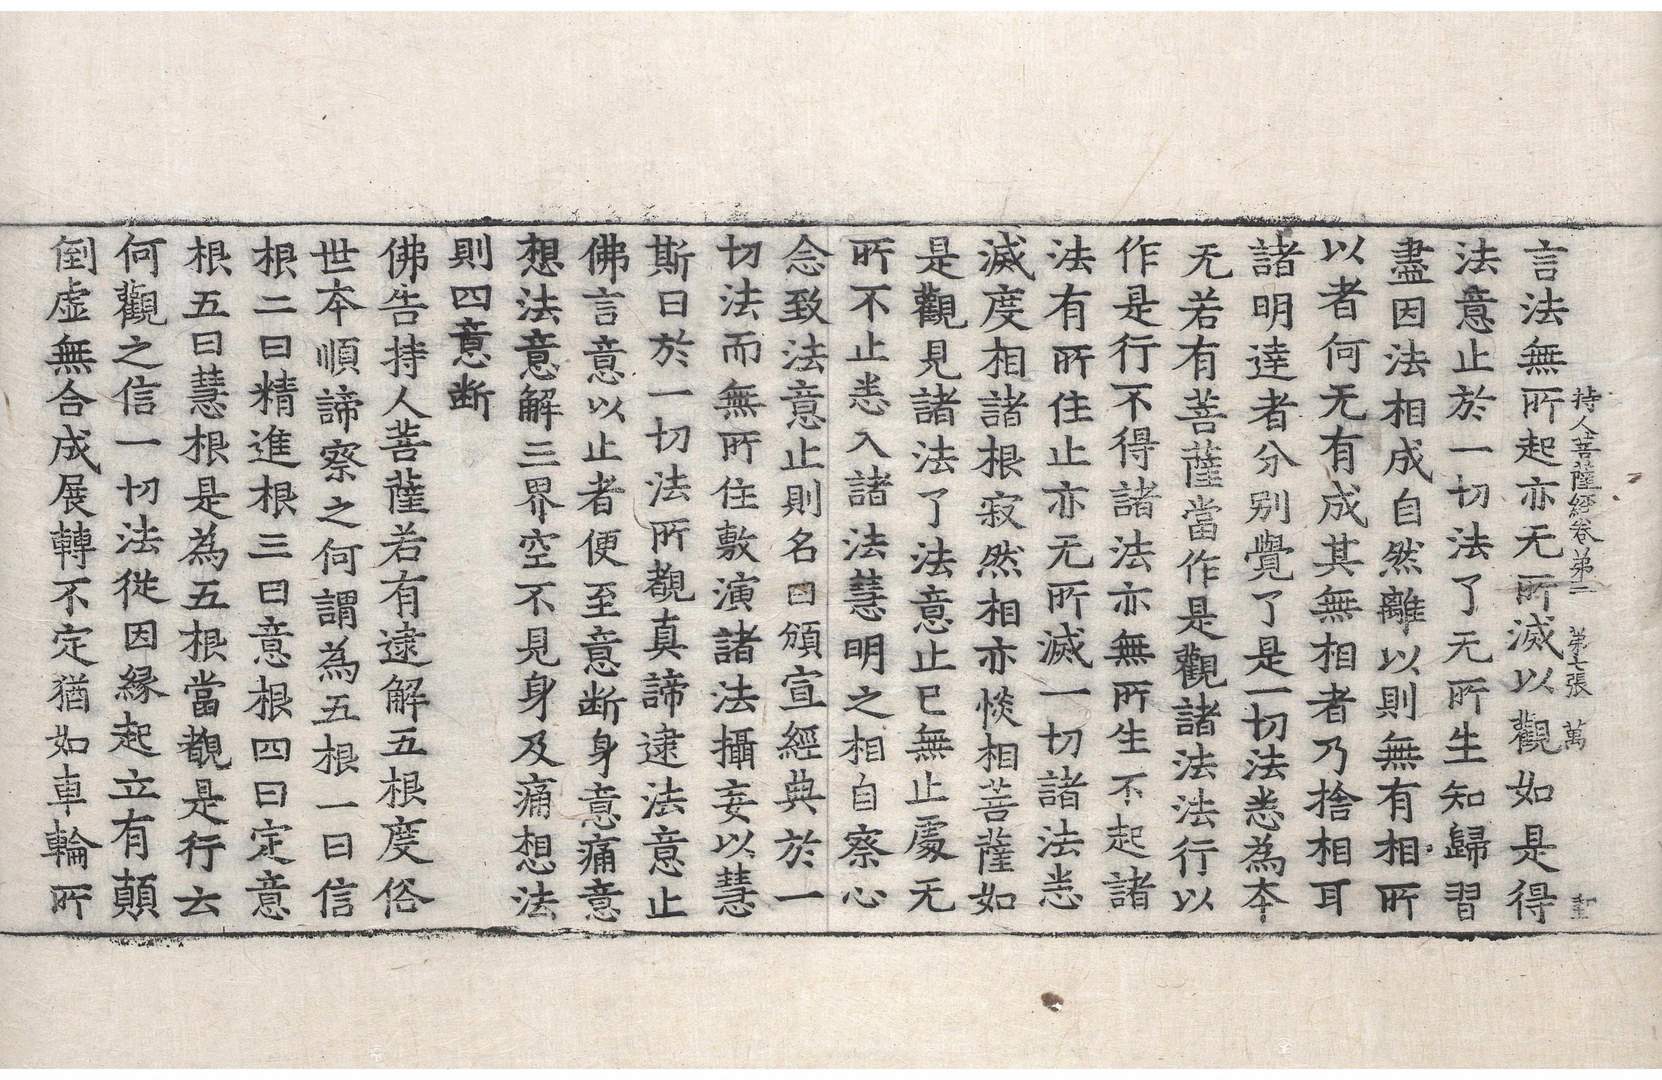 持人菩薩經卷第三 第七張 萬
言法無所起亦无所滅以觀如是得
法意止於一切法了无所生知歸習
盡因法相成自然離以則無有相所
以者何无有成其無相者乃捨相耳
諸明達者分別覺了是一切法悉為本
无若有菩薩當作是觀諸法法行以
作是行不得諸法亦無所生不起諸
法有所住止亦无所滅一切諸法悉
滅度相諸根寂然相亦惔相菩薩如
是觀見諸法了法意止已無止處无
所不止悉入諸法慧明之相自察心
念致法意止則名曰頒宣經典於一
切法而無所住敷演諸法攝妄以慧
斯曰於一切法所觀真諦逮法意止
佛言意以止者便至意断身意痛意
想法意解三界空不見身及痛想法
則四意断
佛告持人菩薩若有逮解五根度俗
世本順諦察之何謂為五根一曰信
根二曰精進根三曰意根四曰定意
根五曰慧根是為五根當觀是行云
何觀之信一切法從因緣起立有顛
倒虛無合成展轉不定猶如車輪所